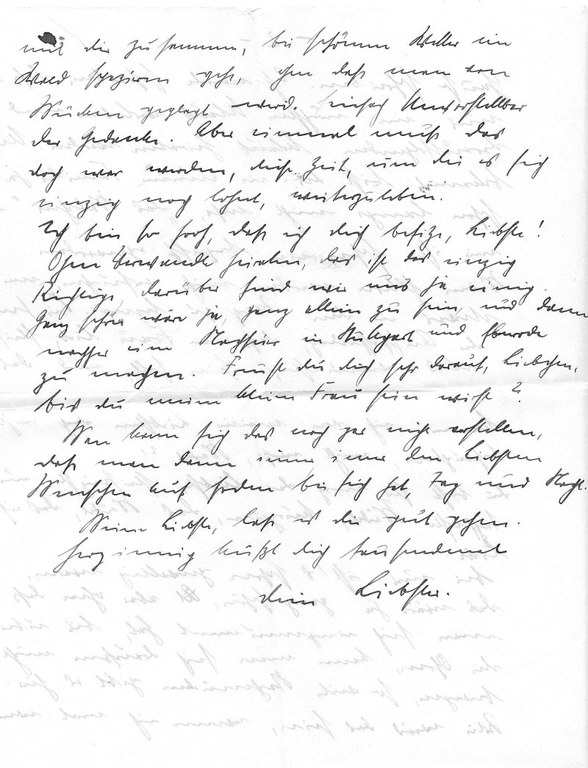 mit dir zusammen, bei schönem Wetter im
Wald spazieren geht, ohne daß man von
Mücken geplagt wird. Einfach unvorstellbar
der Gedanke. Aber einmal muß das
doch war werden, diese Zeit, um die es sich
einzig noch lohnt, weiterzuleben.
Ich bin so froh, daß ich dich besitze, Liebste!
Ohne Verwandte heiraten, das ist das einzig
Richtige, darüber sind wir uns ja einig.
Ganz schön wäre ja ganz allein zu sein und dann
nachher eine Nachfeier in Stuttgart und
zu machen. Freust du dich sehr darauf, Liebchen,
bis du meine kleine Frau sein wirst?
Man kann sich das noch gar nicht vorstellen,
daß man dann immer den liebsten
Menschen auf Erden bei sich hat, Tag und Nacht.
Meine Liebste, laß es dir gut gehen.
Herzinnig küßt dich tausendmal
dein Liebster.